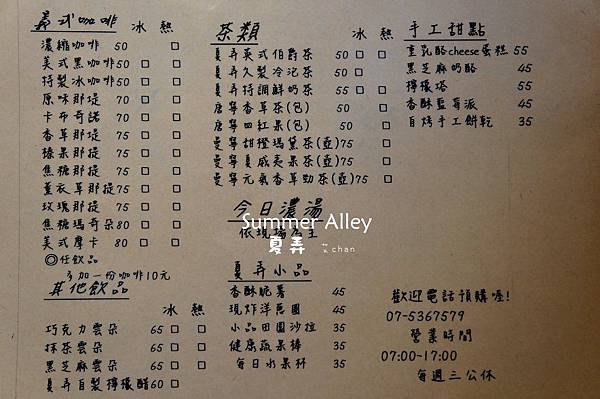 義式咖啡 冰 熱
濃縮咖啡 50 □
美式黑咖啡 50 □ □
特製冰咖啡 50 □
原味那堤 70 □ □
卡布奇諾 70 □ □
香草那提 75 □ □
榛果那提 75 □ □
焦糖那提 75 □ □
薰衣草那提 75 □ □
玫瑰那提 75 □ □
焦糖瑪奇朵 80 □ □
美式摩卡 80 □ □
◎任飲品
多加一份咖啡10元
其他飲品
冰 熱
巧克力雲朵 65 □ □
抹茶雲朵 65 □ □
黑芝麻雲朵 65 □ □
夏弄自製檸檬醋 60 □
茶類 冰 熱
夏弄英式伯爵茶 50 □ □
夏弄久製冷沱茶 50 □
夏弄特調鮮奶茶 55 □ □
唐寧香草茶(包) 50 □
唐寧四紅果(包) 50 □
曼寧甜橙瑪黛茶(壺) 75 □
曼寧夏威夷果茶(壺) 75 □ □
曼寧元氣香草勁茶(壺) 75 □
今日濃湯
依現場為主
Summer Alley
夏弄 chan
夏弄小品
香酥脆薯 45
現炸洋蔥圈 45
小品田園沙拉 35
健康蔬果棒 35
每日水果杯 35
手工甜點
重乳酪cheese蛋糕 55
黑芝麻奶酪 45
檸檬塔 55
香酥藍莓派 45
自烤手工餅乾 35
歡迎電話預購喔!
07-5367579
營業時間
07:00-17:00
每週三公休